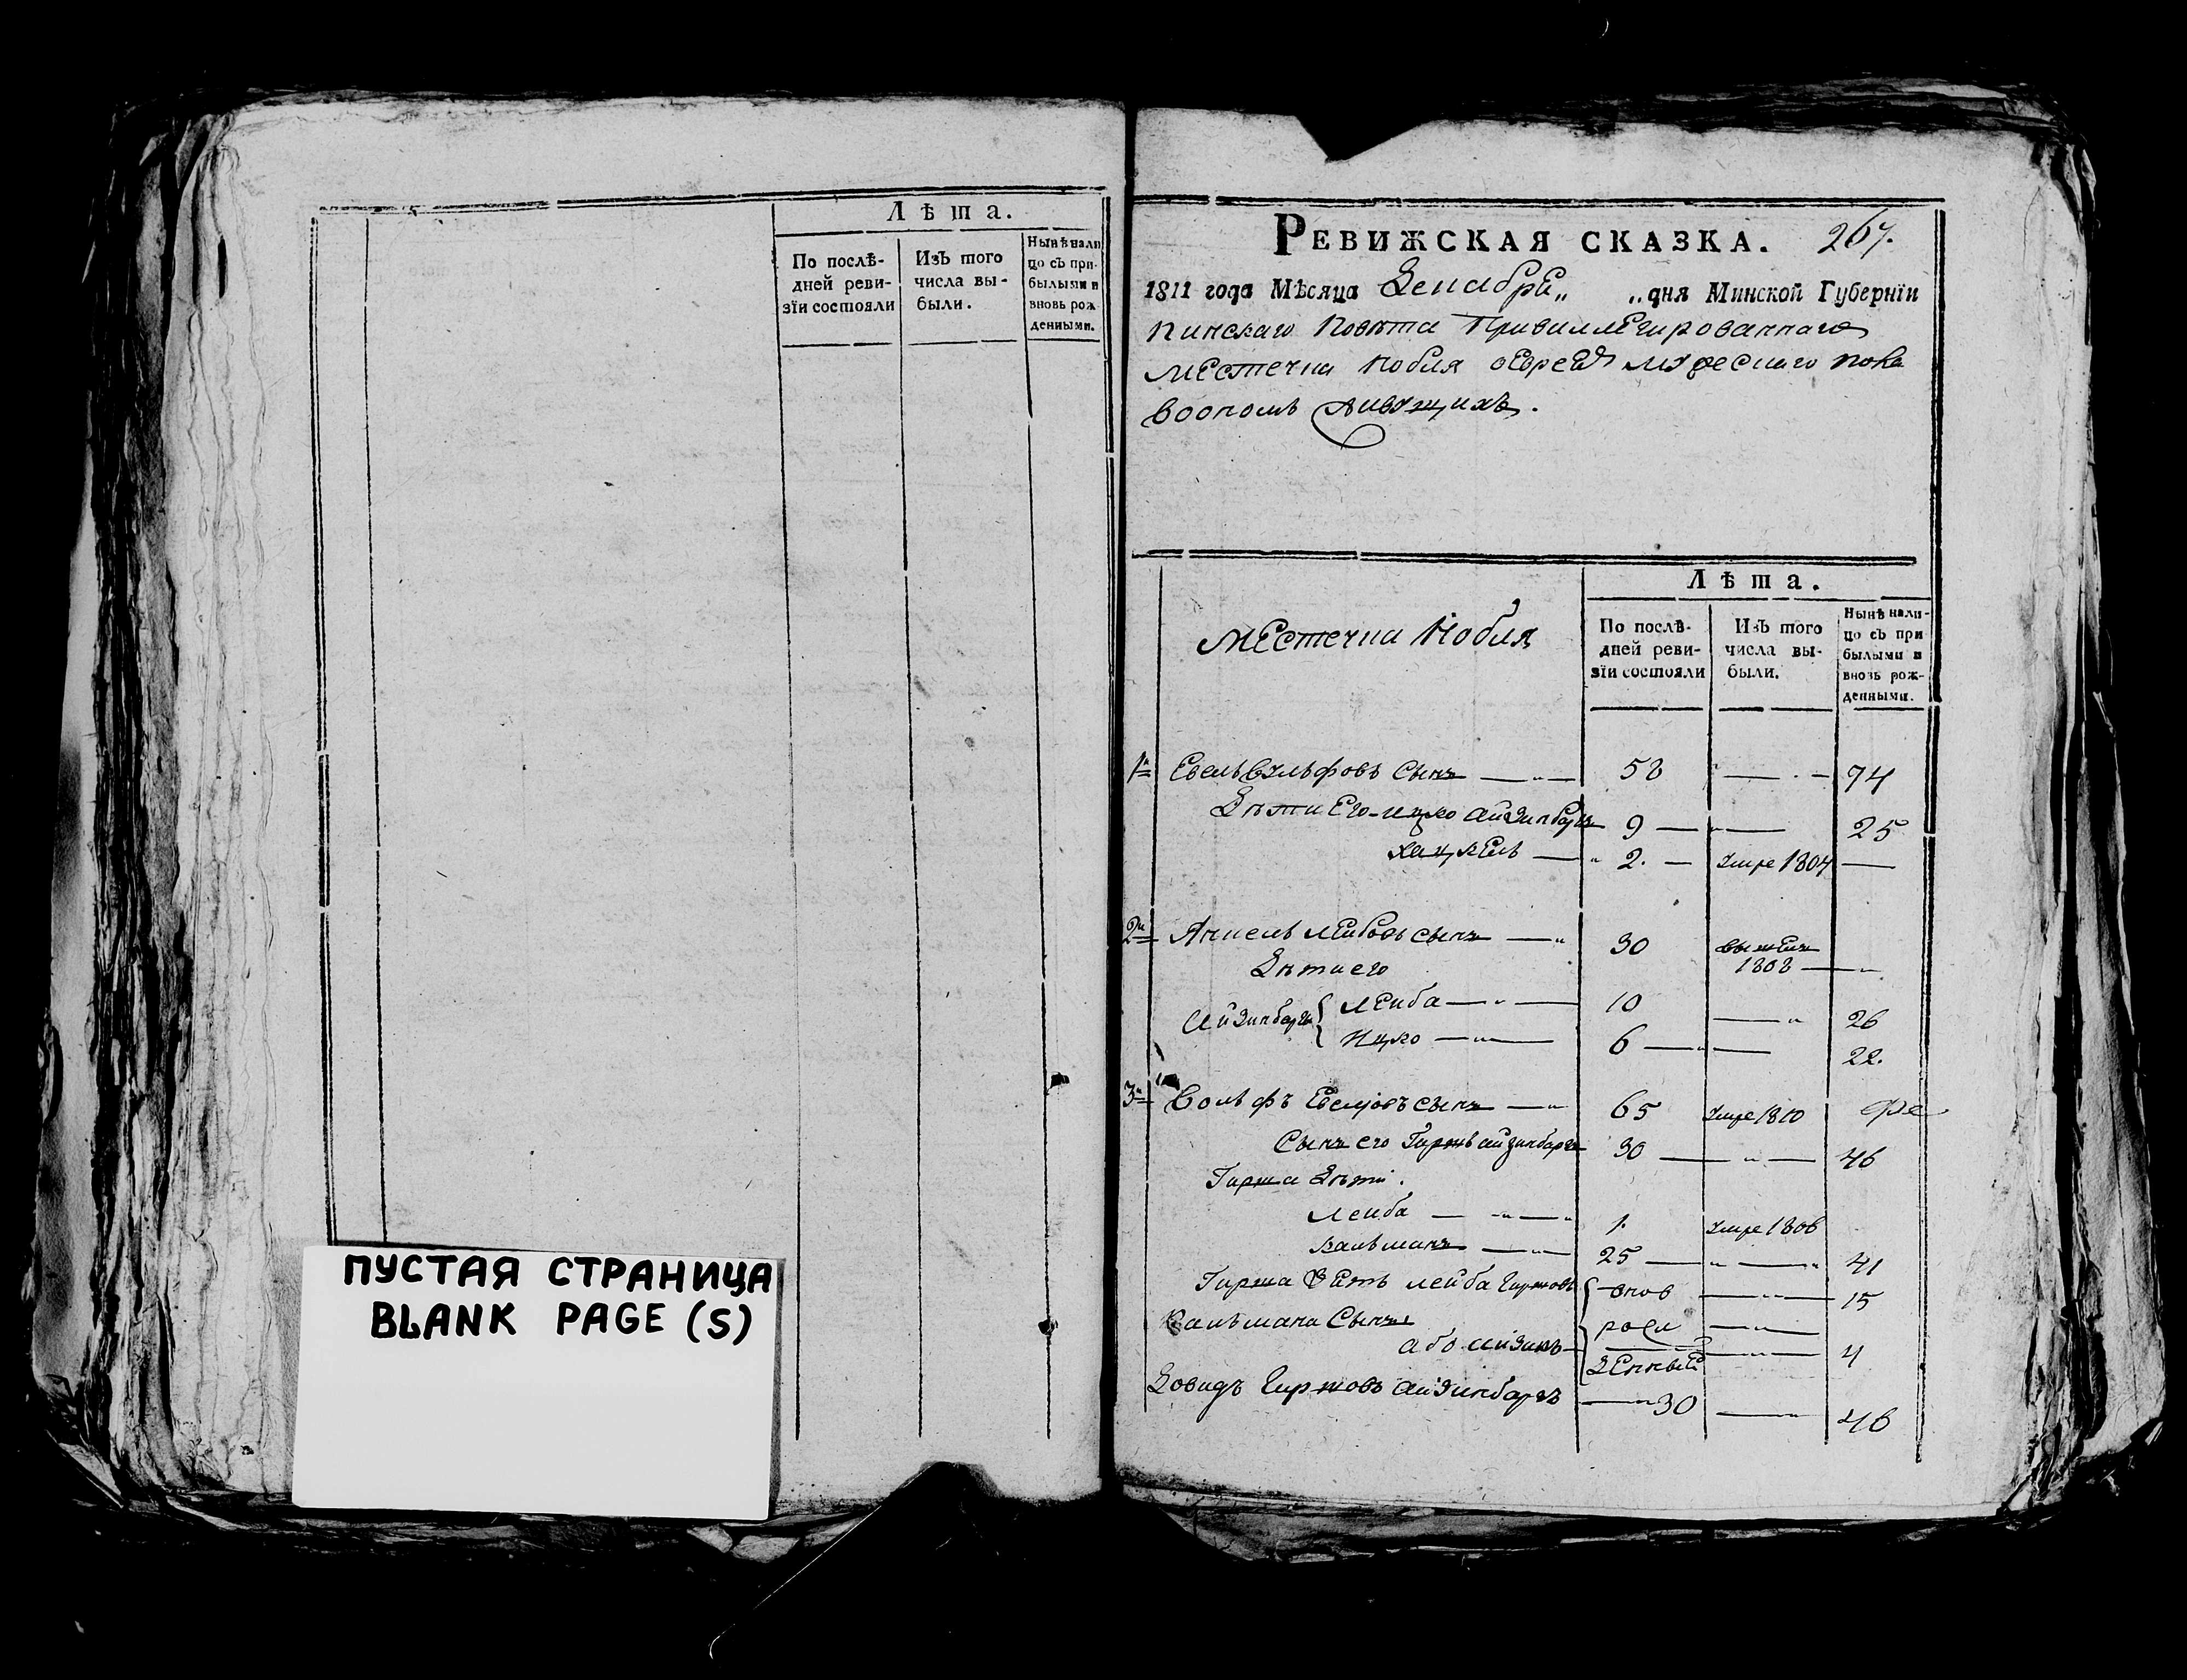 Лѣта.
По послѣ-
дней реви-
зїи состояли
Изъ того
числа вы-
были.
Нынѣ нали
цо съ при-
былыми и
вновь рож
денными.
ПУСТАЯ СТРАНИЦА
BLANK PAGE (S)
РЕВИЖСКАЯ СКАЗКА. 267.
1811 года Мѣсяца Декабря „ „ дня Минской Губернїи
Пинскаго Повѣта Привиллегированнаго
Местечка Кобля
Лѣта.
Местечка Кобля
По послѣ-
дней реви-
зїи состояли
Изъ того
числа вы-
были.
Нынѣ нали-
цо съ при
былыми и
вновь рож-
денными.
1й Евель Вульфовъ Сынъ 58 74
Дѣти Его Ицко Айзинбаргъ 9 25
Хацкель 2. умре 1804
2й Анкель Лейбовъ сынъ 30
1808
Дѣти его
Айзинбарги { Лейба 10 26
Ицко 6 22.
3й Вольфъ Евелевъ сынъ 65 умре 1810
Сынъ его Гиршъ айзинбаргъ 30 46
Гирша Дѣти.
Лейба 1. умре 1806
Кальманъ 25 41
Гирша Зять лейба Гиршовъ { внов 15
Кальмана Сынъ рож
Або Айзикъ денные 4
Довидъ Гиршовъ Айзинбаргъ 30 46